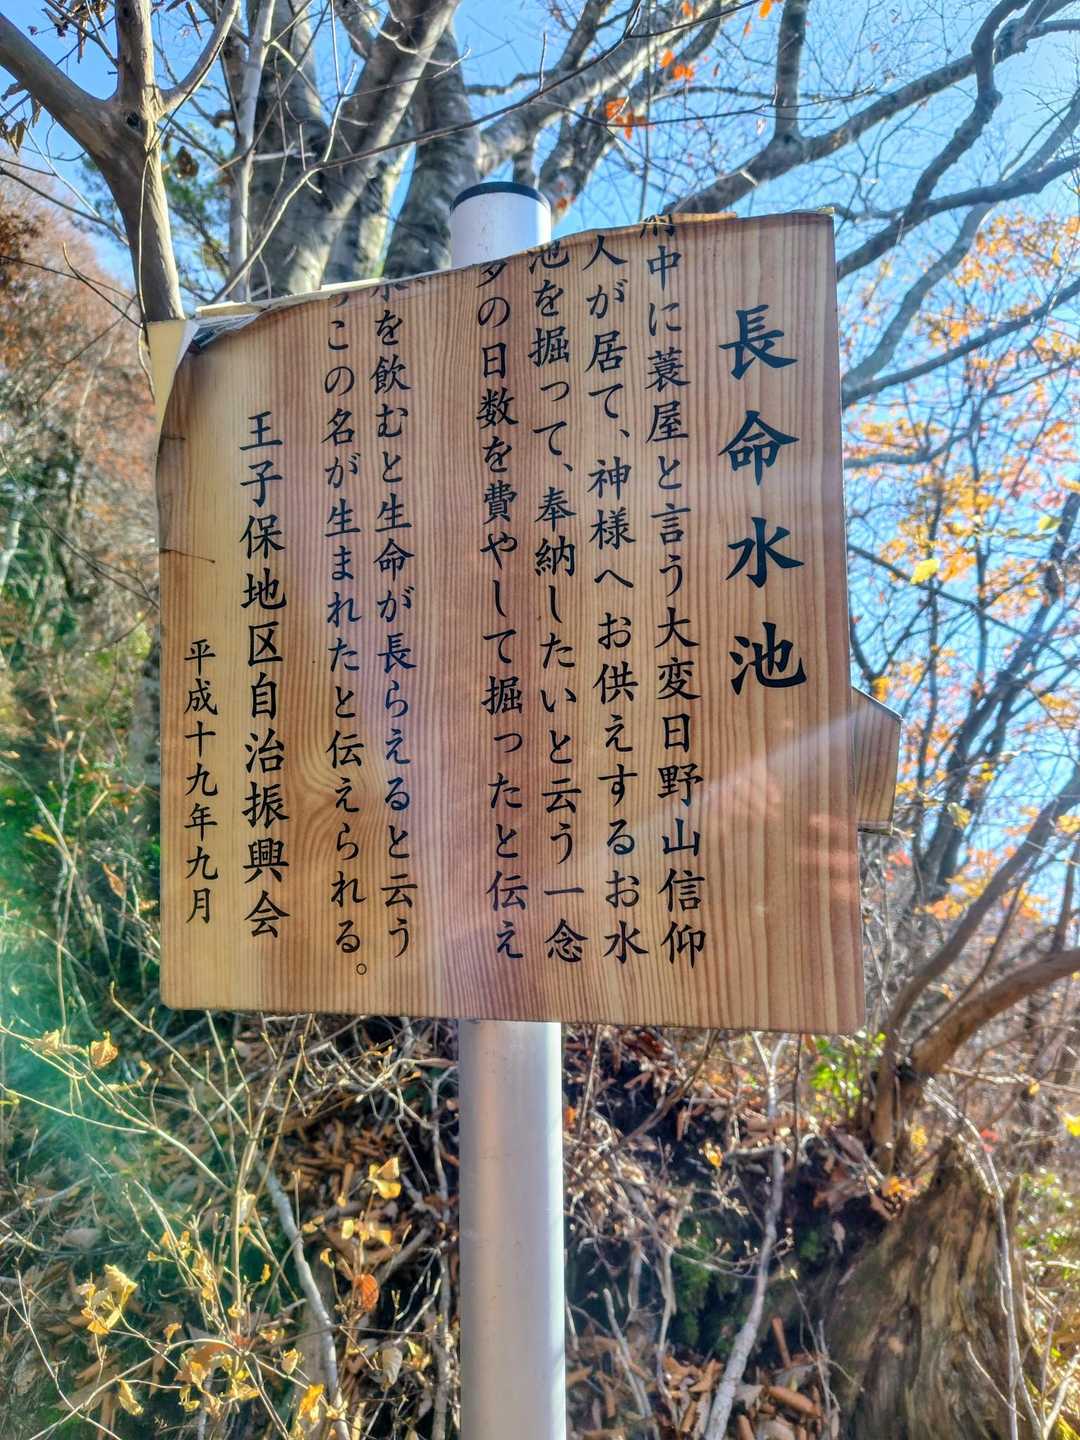 長命水池
府中に蓑屋と言う大変日野山信仰
人が居て、神様へお供えするお水
池を掘って、奉納したいと云う一念
多の日数を費やして掘ったと伝え
水を飲むと生命が長らえると云う
この名が生まれたと伝えられる。
王子保地区自治振興会
平成十九年九月